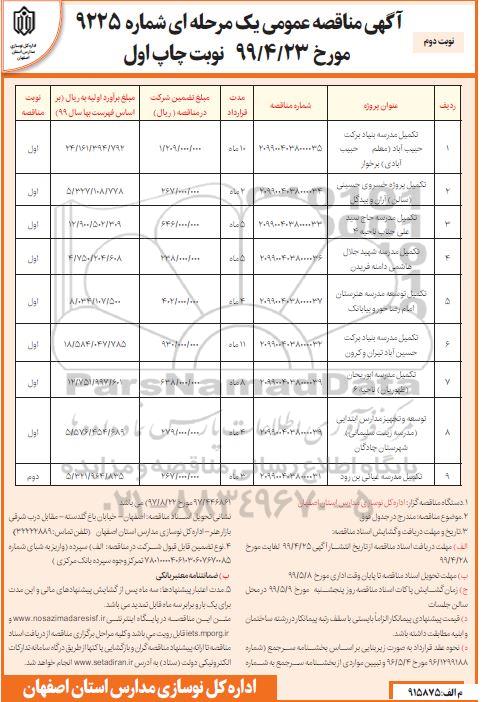 آگهی مناقصه عمومی یک مرحله ای شماره ۹۲۲۵
مورخ ۹۹/۴/۲۳ نوبت چاپ اول
نوبت دوم
اداره کل نوسازی
مدارس استان
اصفهان
ردیف عنوان پروژه شماره مناقصه مدت قرارداد مبلغ تضمین شرکت در مناقصه (ریال) مبلغ برآورد اولیه به ریال (بر اساس فهرست بها سال ۹۹) نوبت مناقصه
۱ تکمیل مدرسه بنیاد برکت حبیب آباد (معلم حبیب آبادی) برخوار ۲۰۹۹۰۰۴۰۳۸۰۰۰۰۳۵ ۱۰ ماه ۱/۲۰۹/۰۰۰/۰۰۰ ۲۴/۱۶۱/۳۹۴/۷۹۲ اول
۲ تکمیل پروژه خسروی حسینی (سالن) آران و بیدگل ۲۰۹۹۰۰۴۰۳۸۰۰۰۰۳۴ ۲ ماه ۲۶۷/۰۰۰/۰۰۰ ۵/۳۲۷/۱۰۸/۷۷۸ اول
۳ تکمیل مدرسه حاج سید علی جناب ناحیه ۴ ۲۰۹۹۰۰۴۰۳۸۰۰۰۰۳۳ ۵ ماه ۶۴۶/۰۰۰/۰۰۰ ۱۲/۹۰۰/۵۰۲/۳۰۹ اول
۴ تکمیل مدرسه شهید جلال هاشمی دامنه فریدن ۲۰۹۹۰۰۴۰۳۸۰۰۰۰۳۶ ۵ ماه ۲۳۸/۰۰۰/۰۰۰ ۴/۷۵۰/۲۰۴/۶۰۸ اول
۵ تکمیل توسعه مدرسه هنرستان امام رضا خور و بیابانک ۲۰۹۹۰۰۴۰۳۸۰۰۰۰۳۷ ۴ ماه ۴۰۲/۰۰۰/۰۰۰ ۸/۰۳۴/۱۰۷/۵۰۰ اول
۶ تکمیل مدرسه بنیاد برکت حسین آباد تیران و کرون ۲۰۹۹۰۰۴۰۳۸۰۰۰۰۳۲ ۱۱ ماه ۹۳۰/۰۰۰/۰۰۰ ۱۸/۵۸۴/۰۴۷/۷۸۵ اول
۷ تکمیل مدرسه ابوریحان (ظهوریان) ناحیه ۶ ۲۰۹۹۰۰۴۰۳۸۰۰۰۰۳۹ ۸ ماه ۶۳۸/۰۰۰/۰۰۰ ۱۲/۷۵۱/۹۹۷/۶۰۱ اول
۸ توسعه و تجهیز مدارس ابتدایی (مدرسه زینت سلیمانی) شهرستان چادگان ۲۰۹۹۰۰۴۰۳۸۰۰۰۰۳۹ ۴ ماه ۲۷۹/۰۰۰/۰۰۰ ۵/۵۷۶/۴۵۴/۶۸۹ اول
۹ تکمیل مدرسه غیاثی بن رود ۲۰۹۹۰۰۴۰۳۸۰۰۰۰۳۱ ۳ ماه ۲۶۷/۰۰۰/۰۰۰ ۵/۳۲۱/۹۶۴/۸۳۵ دوم
۱. دستگاه مناقصه گزار: اداره کل نوسازی مدارس استان اصفهان
۲. موضوع مناقصه: مندرج در جدول فوق
۳. تاریخ و مهلت دریافت و گشایش اسناد مناقصه:
الف) مهلت دریافت اسناد مناقصه از تاریخ انتشار آگهی ۹۹/۴/۲۵ لغایت مورخ ۹۹/۴/۲۸
ب) مهلت تحویل اسناد مناقصه تا پایان وقت اداری مورخ ۹۹/۵/۸
ج) زمان گشایش پاکات اسناد مناقصه روز پنجشنبه مورخ ۹۹/۵/۹ در محل سالن جلسات
د) قیمت پیشنهادی پیمانکار الزاماً بایستی با سقف رتبه پیمانکار در رشته ساختمان و ابنیه مطابقت داشته باشد.
ه) نحوه عقد قرارداد به صورت زیر بنایی بر اساس بخشنامه سرجمع (شماره ۹۶/۱۲۹۹۱۸۸ مورخ ۹۶/۵/۴ و تبیین مواردی از بخشنامه سرجمع به شماره
۹۷/۴۴۶۸۶۱ مورخ ۹۷/۸/۲۲) می باشد
نشانی تحویل اسناد مناقصه: اصفهان - خیابان باغ گلدسته - مقابل درب شرقی بازار هنر - اداره کل نوسازی مدارس استان اصفهان (تلفن تماس: ۳۲۲۲۲۸۸۹)
۴. نوع تضمین قابل قبول شرکت در مناقصه: الف) سپرده (واریز به شبای شماره
تمرکز وجوه سپرده بانک مرکزی)
ب) ضمانتنامه معتبر بانکی
۵. مدت اعتبار پیشنهادها: سه ماه پس از گشایش پیشنهادهای مالی و این مدت برای یک بار و برابر سه ماه قابل تمدید می باشد.
متن این مناقصه در پایگاه اینترنتی www.nosazimadaresisf.ir و iets.mporg.ir قابل رویت می باشد و کلیه مراحل برگزاری مناقصه از دریافت اسناد مناقصه تا ارائه پیشنهاد مناقصه گران و بازگشایی پاکتها از طریق درگاه سامانه تدارکات الکترونیکی دولت (ستاد) به آدرس www.setadiran.ir انجام خواهد شد.
اداره کل نوسازی مدارس استان اصفهان
م الف: ۹۱۵۸۷۵
ParsNamadData